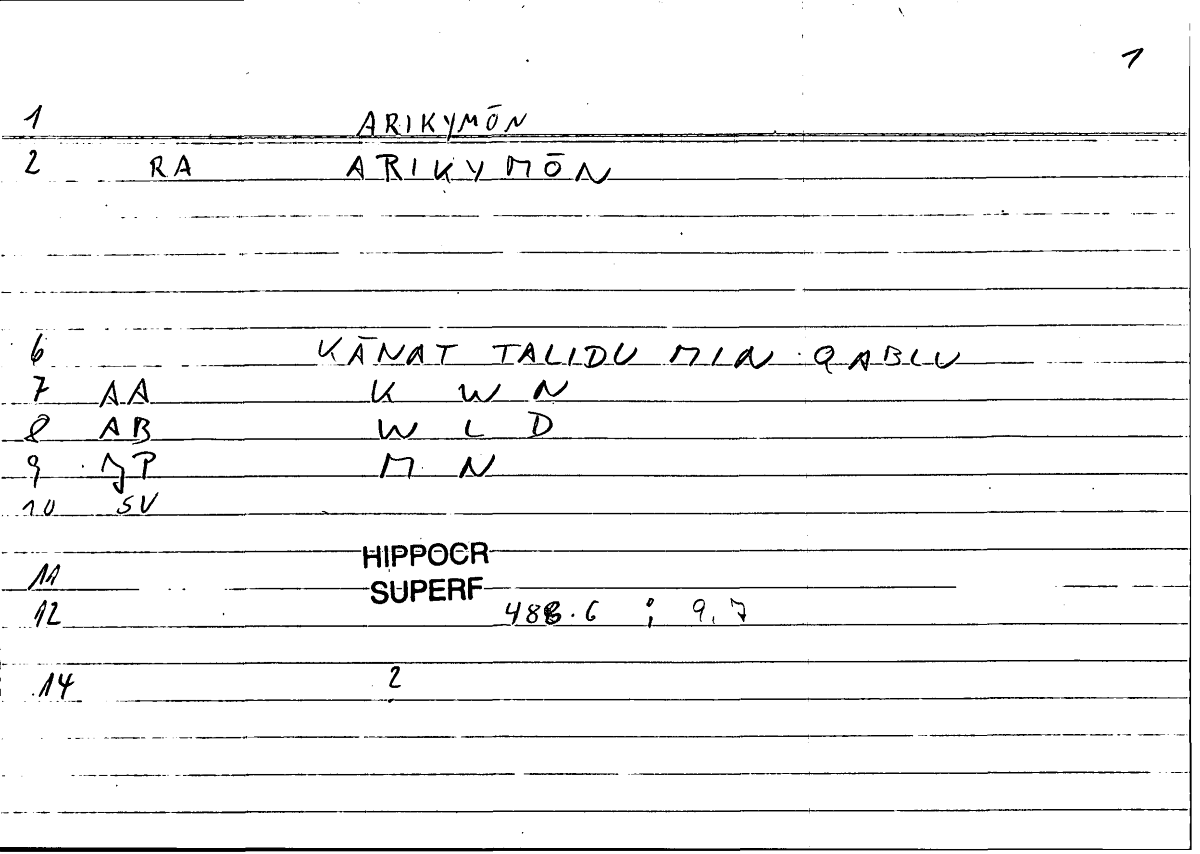 1
1 ARIKYMŌN
2 RA ARIKYMŌN
6 KĀNAT TALIDU MIN QABLU
7 AA K W N
8 AB W L D
9 M N
10 SV
11 HIPPOCR
SUPERF
12 488.6 ; 9.7
14 2